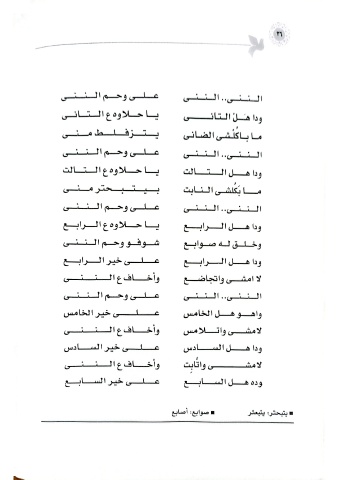 ٢٦
الننى.. الننى على وحم الننى
ودا هل التانى يا حلاوه ع التانى
ما باكُلشى الضانى يتزفلط منى
الننى.. الننى على وحم الننى
ودا هل التالت يا حلاوه ع التالت
ما بَكُلشى النابت بيتبحتر منى
الننى.. الننى على وحم الننى
ودا هل الرابع يا حلاوه ع الرابع
وخلق له صوابع شوفو وحم الننى
ودا هل الرابع على خير الرابع
لا امشى واتجاضع وأخاف ع الننى
الننى.. الننى على وحم الننى
واهو هل الخامس على خير الخامس
لامشى واتلامس وأخاف ع الننى
ودا هل السادس على خير السادس
لامشى واتَّابت وأخاف ع الننى
وده هل السابع على خير السابع
■ يتبحتر: يتبعثر ■ صوابع: أصابع